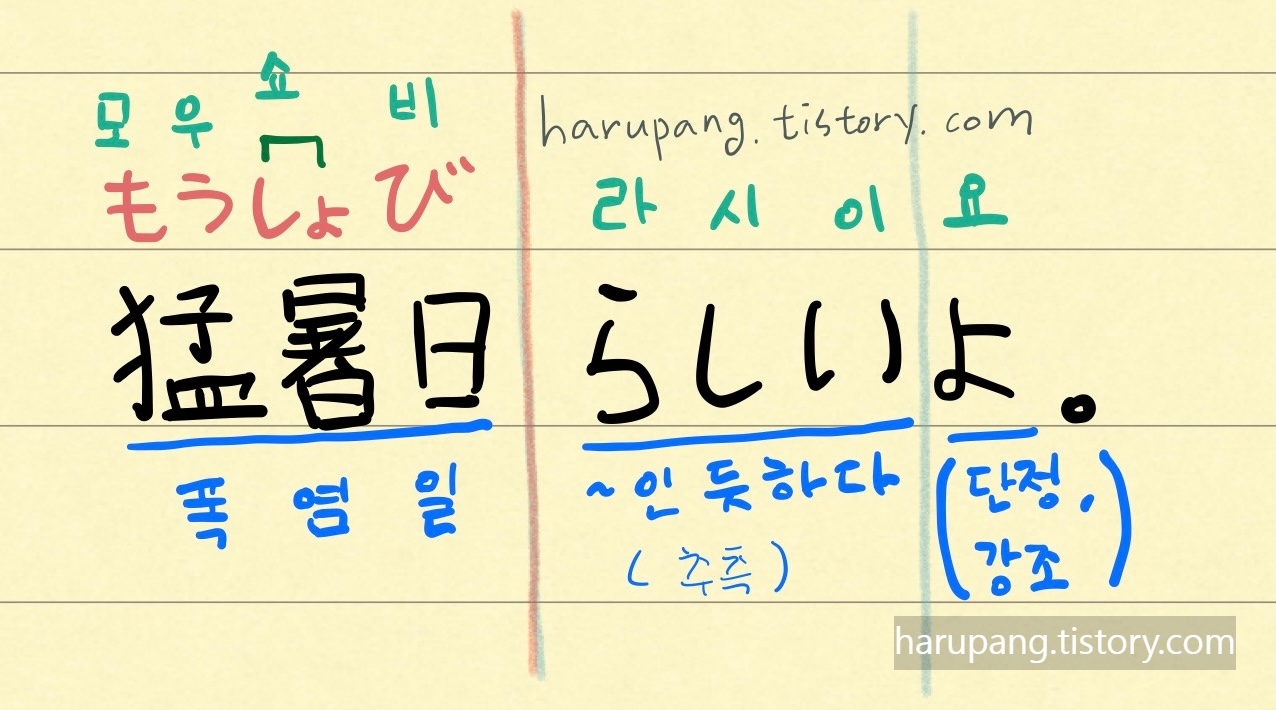 모 우 쇼 비
harupang.tistory.com
もうしょび
라 시 이 요
猛暑日 らしいよ。
폭 염 일 ~인 듯하다 (단정,
(추측) 강조)
harupang.tistory.com